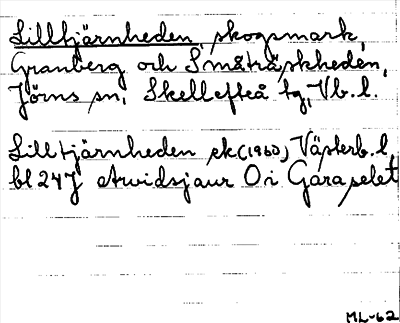 Lilltjärnheden, skogsmark,
Granberg och Småträskheden,
Jörns sn, Skellefteå tg, Vb. l.
Lilltjärnheden ek (1960), Västerb. l,
bl 24J Arvidsjaur Ö i Garaselet
ML-62